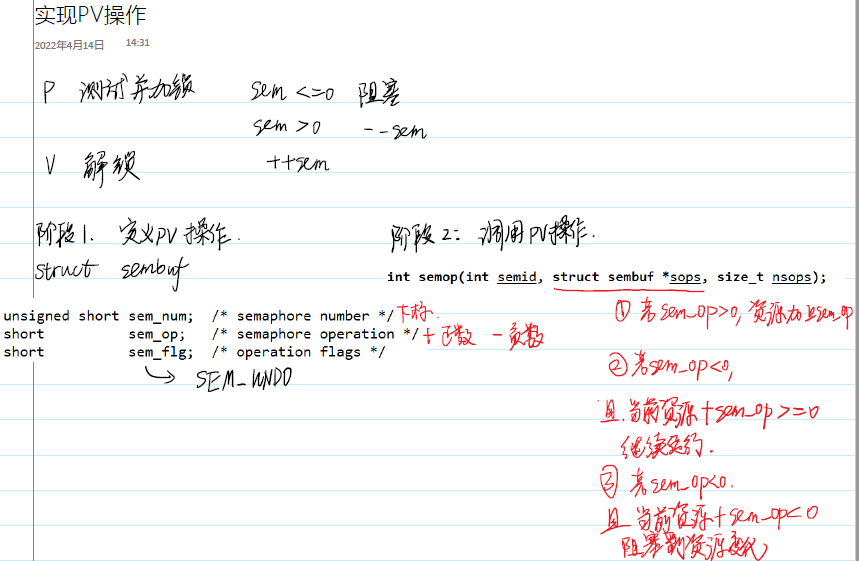 实现PV操作
2022年4月14日 14:31
P 测试并加锁 sem <=0 阻塞
sem >0 --sem
V 解锁 ++sem
阶段1. 定义PV操作.
struct sembuf
unsigned short sem_num; /* semaphore number */ 下标.
short sem_op; /* semaphore operation */ + 正数 - 负数
short sem_flg; /* operation flags */
SEM_UNDO
阶段2: 调用PV操作.
int semop(int semid, struct sembuf *sops, size_t nsops);
① 若sem_op>0, 资源加上sem_op
② 若sem_op<0,
且当前资源+sem_op>=0
继续运行.
③ 若sem_op<0.
且当前资源+sem_op<0
阻塞到资源变化